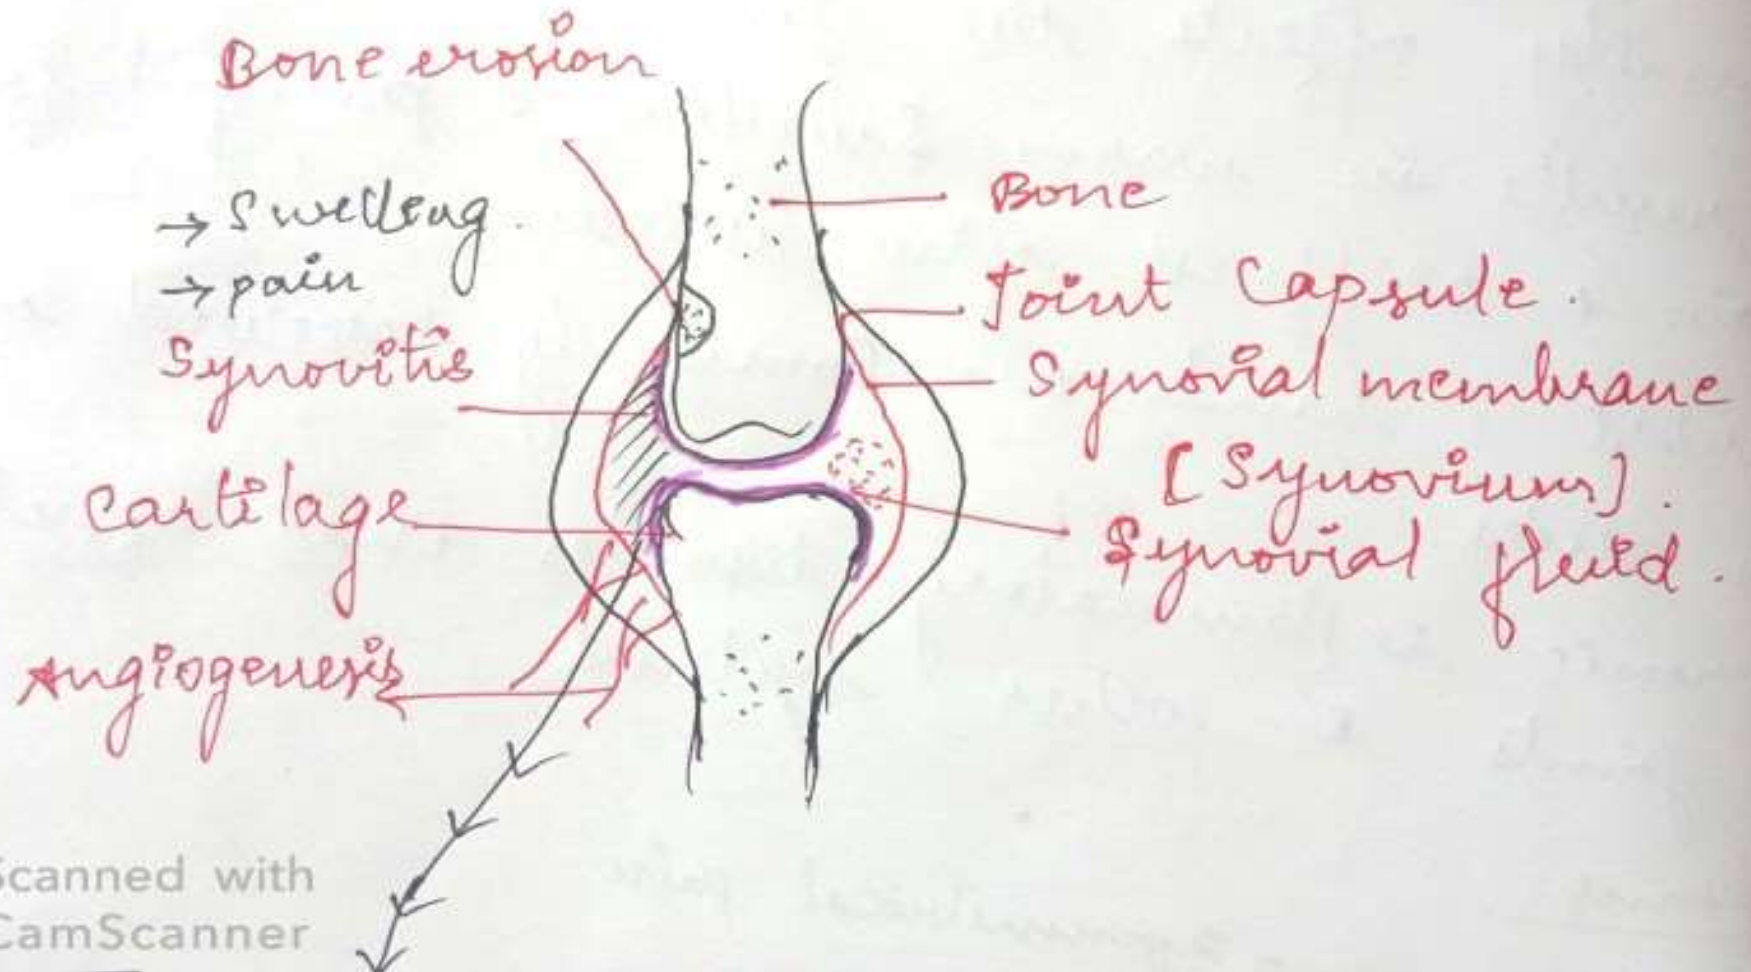 Bone erosion
→ Swelling.
→ pain
Synovitis
Cartilage
Angiogenesis
Bone
Joint Capsule.
Synovial membrane
[Synovium].
Synovial fluid.
Scanned with
CamScanner